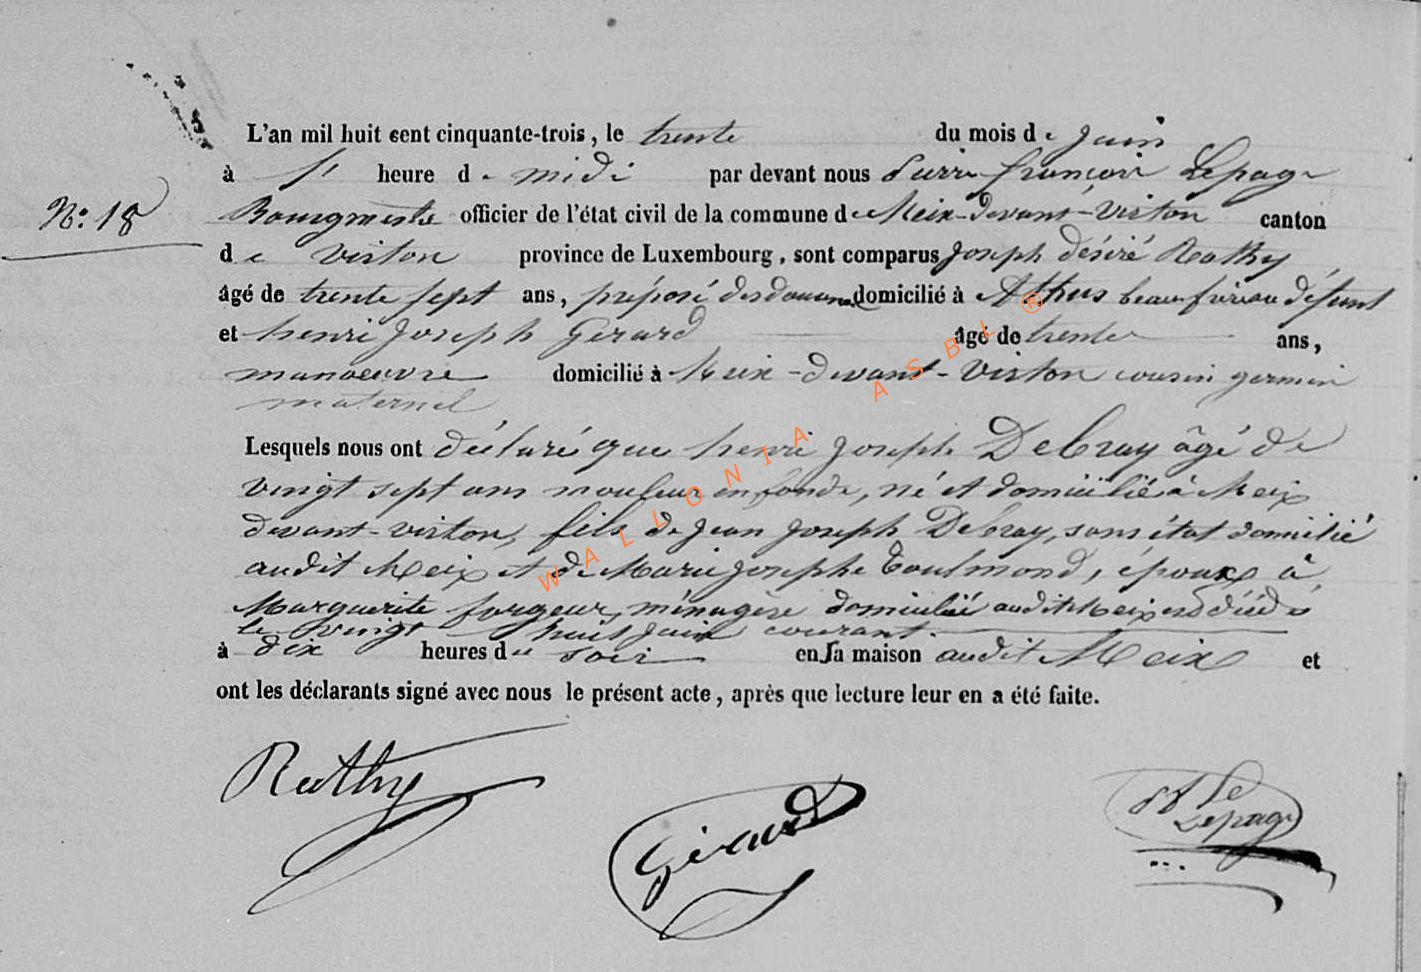 L'an mil huit cent cinquante-trois, le trente du mois de juin
à 1 heure de midi par devant nous Pierre françois Lepage
N° 18 Bourgmestre officier de l'état civil de la commune de Meix-devant-Virton canton
de Virton province de Luxembourg, sont comparus Joseph désiré Rathy
âgé de trente sept ans, préposé des douanes domicilié à Athus beau frère au défunt
et henri Joseph Gerard âgé de trente ans,
manoeuvre domicilié à Meix-devant-Virton cousin germain
maternel
Lesquels nous ont déclaré que henri Joseph Debray âgé de
vingt sept ans mouleur en fonde, né et domicilié à Meix
devant-virton, fils de Jean Joseph Debray, sans état domicilié
audit Meix et de Marie Josephe Toulmond, époux à
Marguerite forgeur, ménagère domiciliée audit Meix est décédé
le vingt huit juin courant.
à dix heures du soir en sa maison audit Meix et
ont les déclarants signé avec nous le présent acte, après que lecture leur en a été faite.
Rathy
Gérard
Lepage
WALLONIA ASBL ®